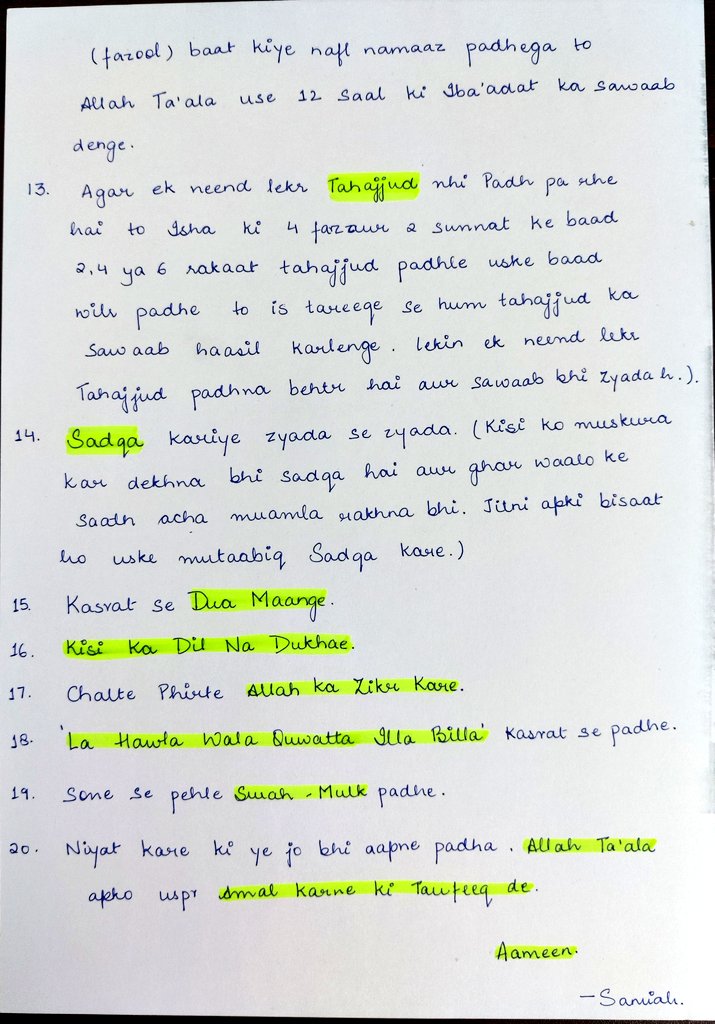 (fazool) baat kiye nafl namaaz padhega to
Allah Ta'ala use 12 saal ki Iba'adat ka sawaab
denge.
13. Agar ek neend lekr Tahajjud nhi Padh pa rhe
hai to Isha ki 4 farzaur 2 sunnat ke baad
2,4 ya 6 rakaat tahajjud padhle uske baad
witr padhe to is tareeqe se hum tahajjud ka
sawaab haasil karlenge. lekin ek neend lekr
Tahajjud padhna behtr hai aur sawaab bhi zyada h.).
14. Sadqa kariye zyada se zyada. (Kisi ko muskura
kar dekhna bhi sadqa hai aur ghar waalo ke
saath acha muamla rakhna bhi. Jitni apki bisaat
ho uske mutaabiq Sadqa kare.)
15. Kasrat se Dua Maange.
16. Kisi Ka Dil Na Dukhae.
17. Chalte Phirte Allah ka Zikr Kare.
18. 'La Hawla Wala Quwatta Illa Billa' Kasrat se padhe.
19. Sone se pehle Surah - Mulk padhe.
20. Niyat kare ki ye jo bhi aapne padha. Allah Ta'ala
apko uspr Amal karne ki Taufeeq de.
Aameen.
- Samiah.